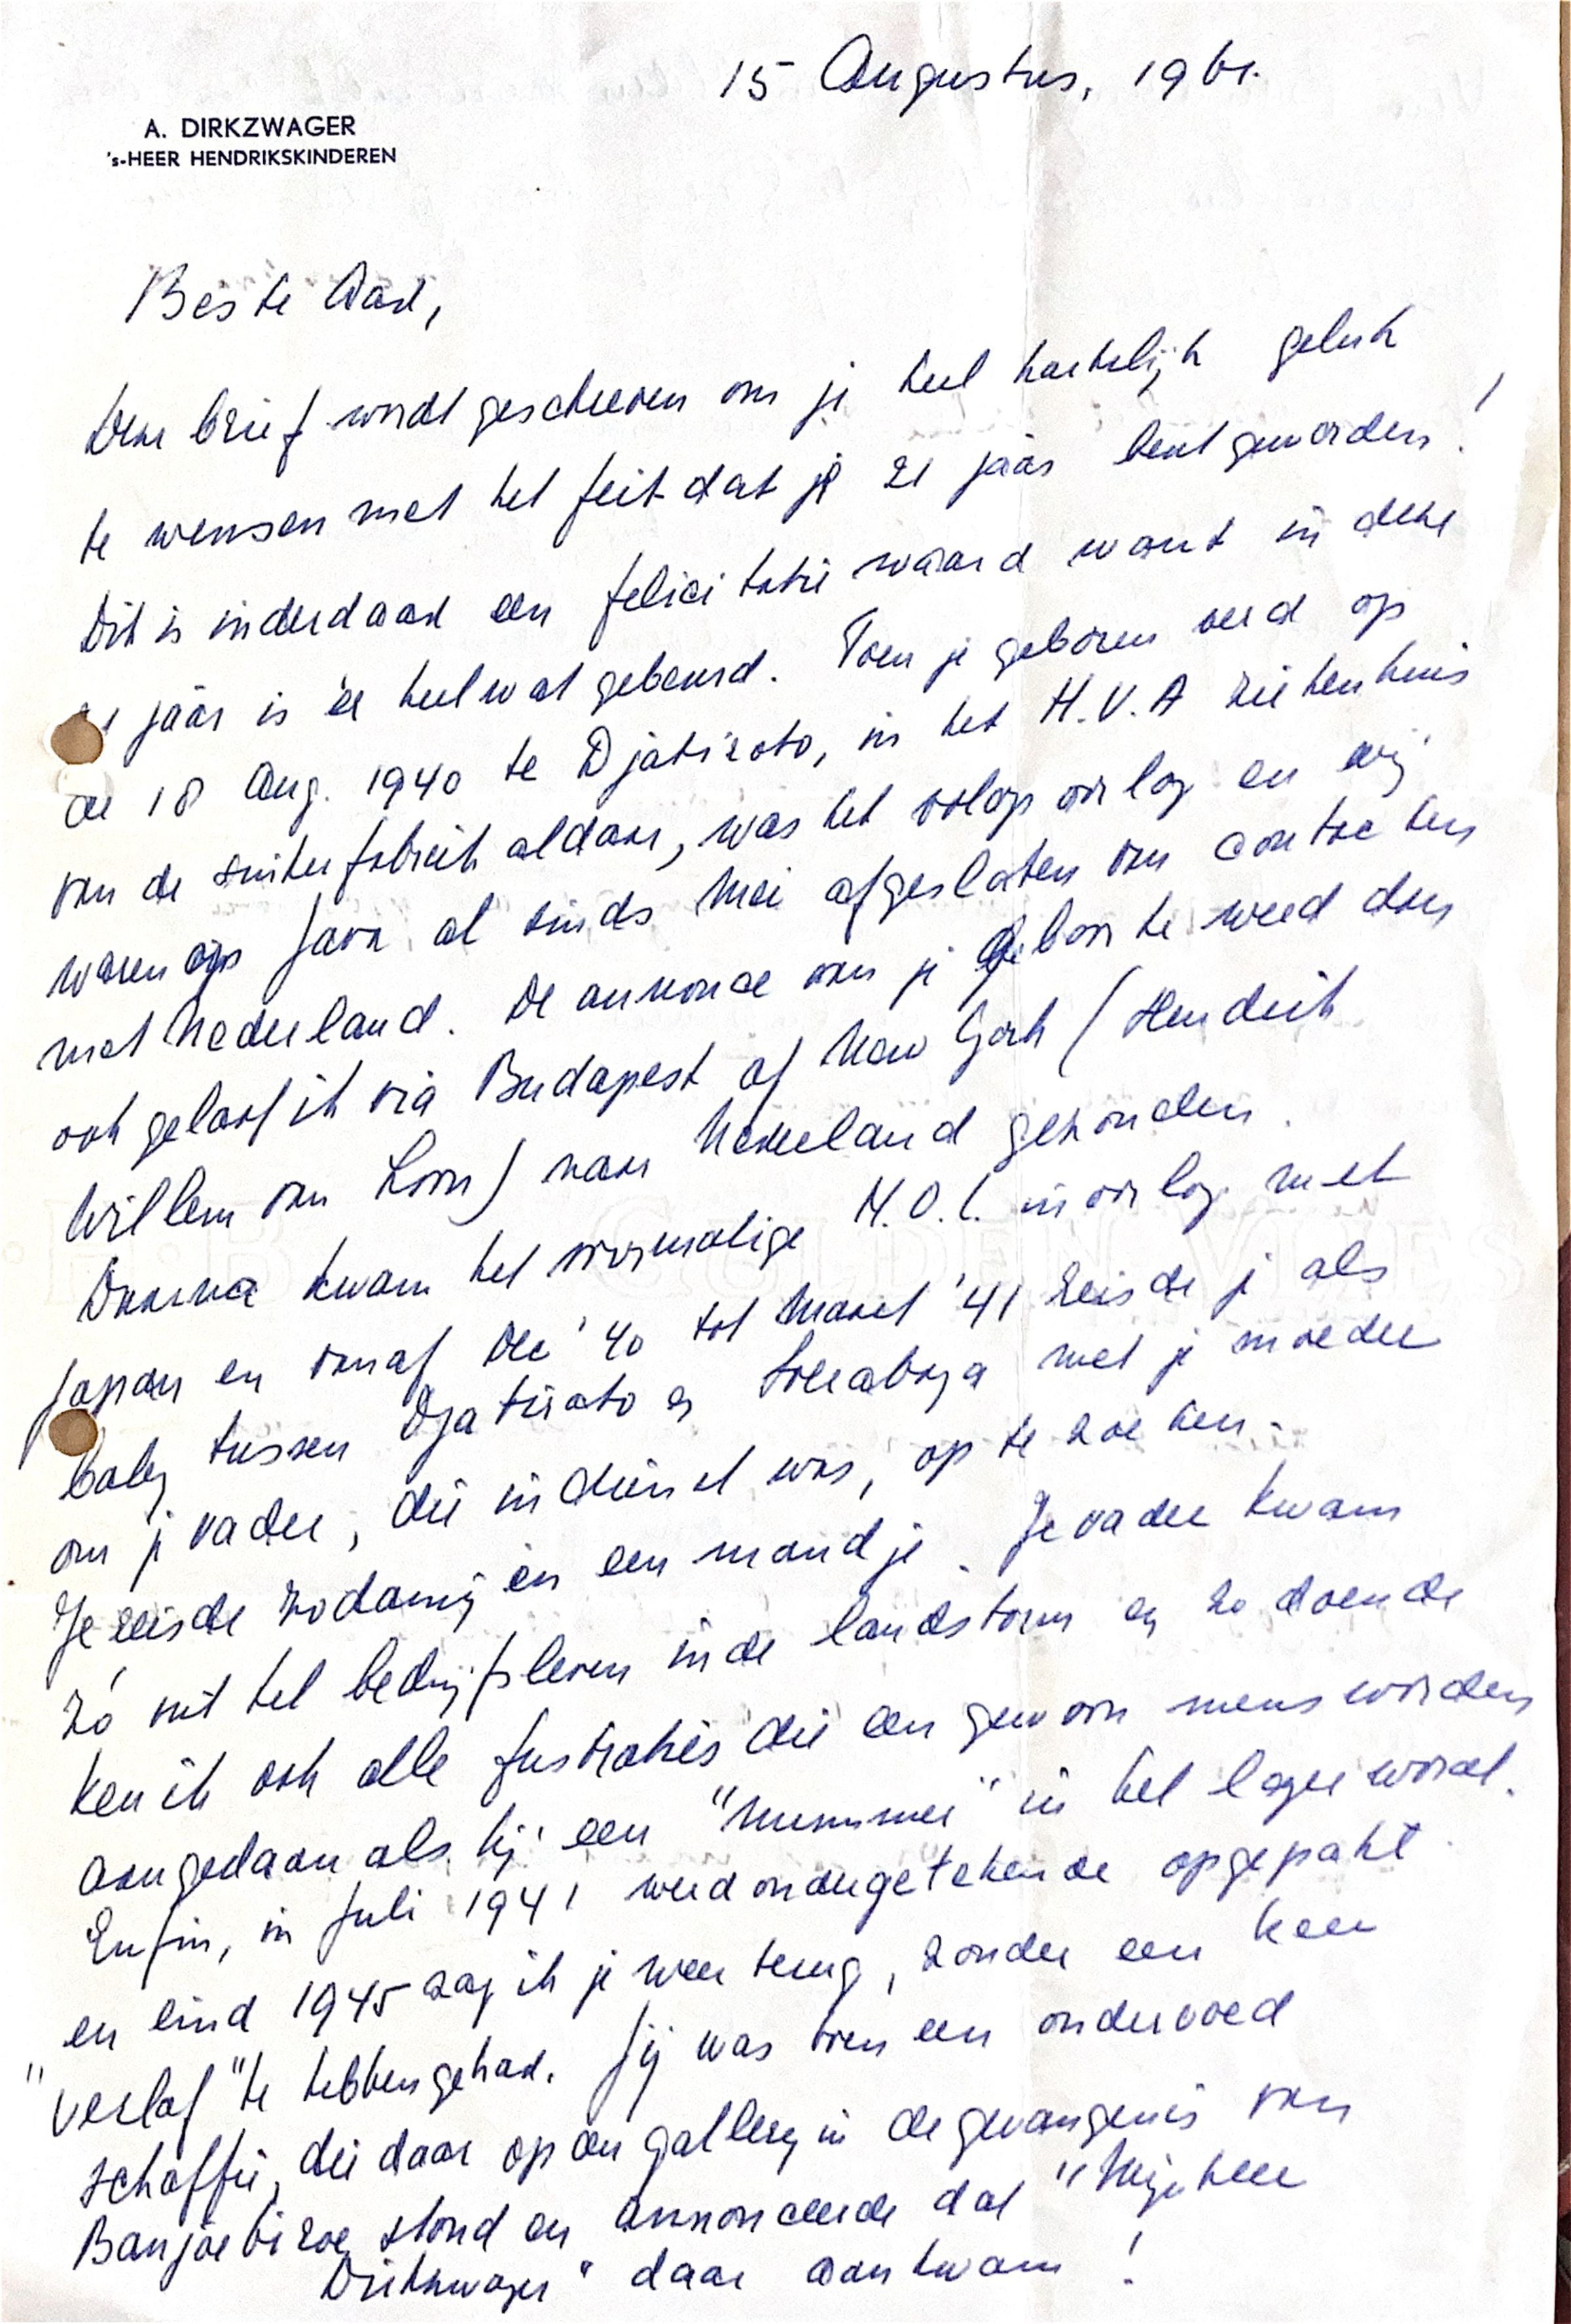 15 Augustus, 1961.
A. DIRKZWAGER
's-HEER HENDRIKSKINDEREN
Beste Aad,
Deze brief wordt geschreven om je heel hartelijk geluk
te wensen met het feit dat je 21 jaar bent geworden!
Dit is inderdaad een felicitatie waard want in deze
21 jaar is er heel wat gebeurd. Toen je geboren werd op
de 18 Aug. 1940 te Djatiroto, in het H.V.A ziekenhuis
van de suikerfabriek aldaar, was het volop oorlog en wij
waren op Java al sinds Mei afgesloten van contacten
met Nederland. De annonce van je geboorte werd dan
ook geloof ik via Budapest of New York (Hendrik
Willem van Loon) naar Nederland gezonden.
Daarna kwam het voormalige N.O.I. in oorlog met
Japan en vanaf Dec '40 tot Maart '41 reisde je als
baby tussen Djatiroto en Soerabaja met je moeder
om je vader, die in dienst was, op te zoeken.
Je reisde zodanig in een mandje. Je vader kwam
zó uit het bedrijfsleven in de landstorm en zodoende
ken ik ook alle frustraties die een gewoon mens worden
aangedaan als hij een "nummer" in het leger wordt.
Enfin, in Juli 1941 werd ondergetekende opgepakt
en eind 1945 zag ik je weer terug, zonder een keer
"verlof" te hebben gehad. Jij was toen een ondervoed
schoffie, die daar op een gallery in de gevangenis van
Banjoebiroe stond en annonceerde dat "Mijnheer
Dirkzwager" daar aankwam!